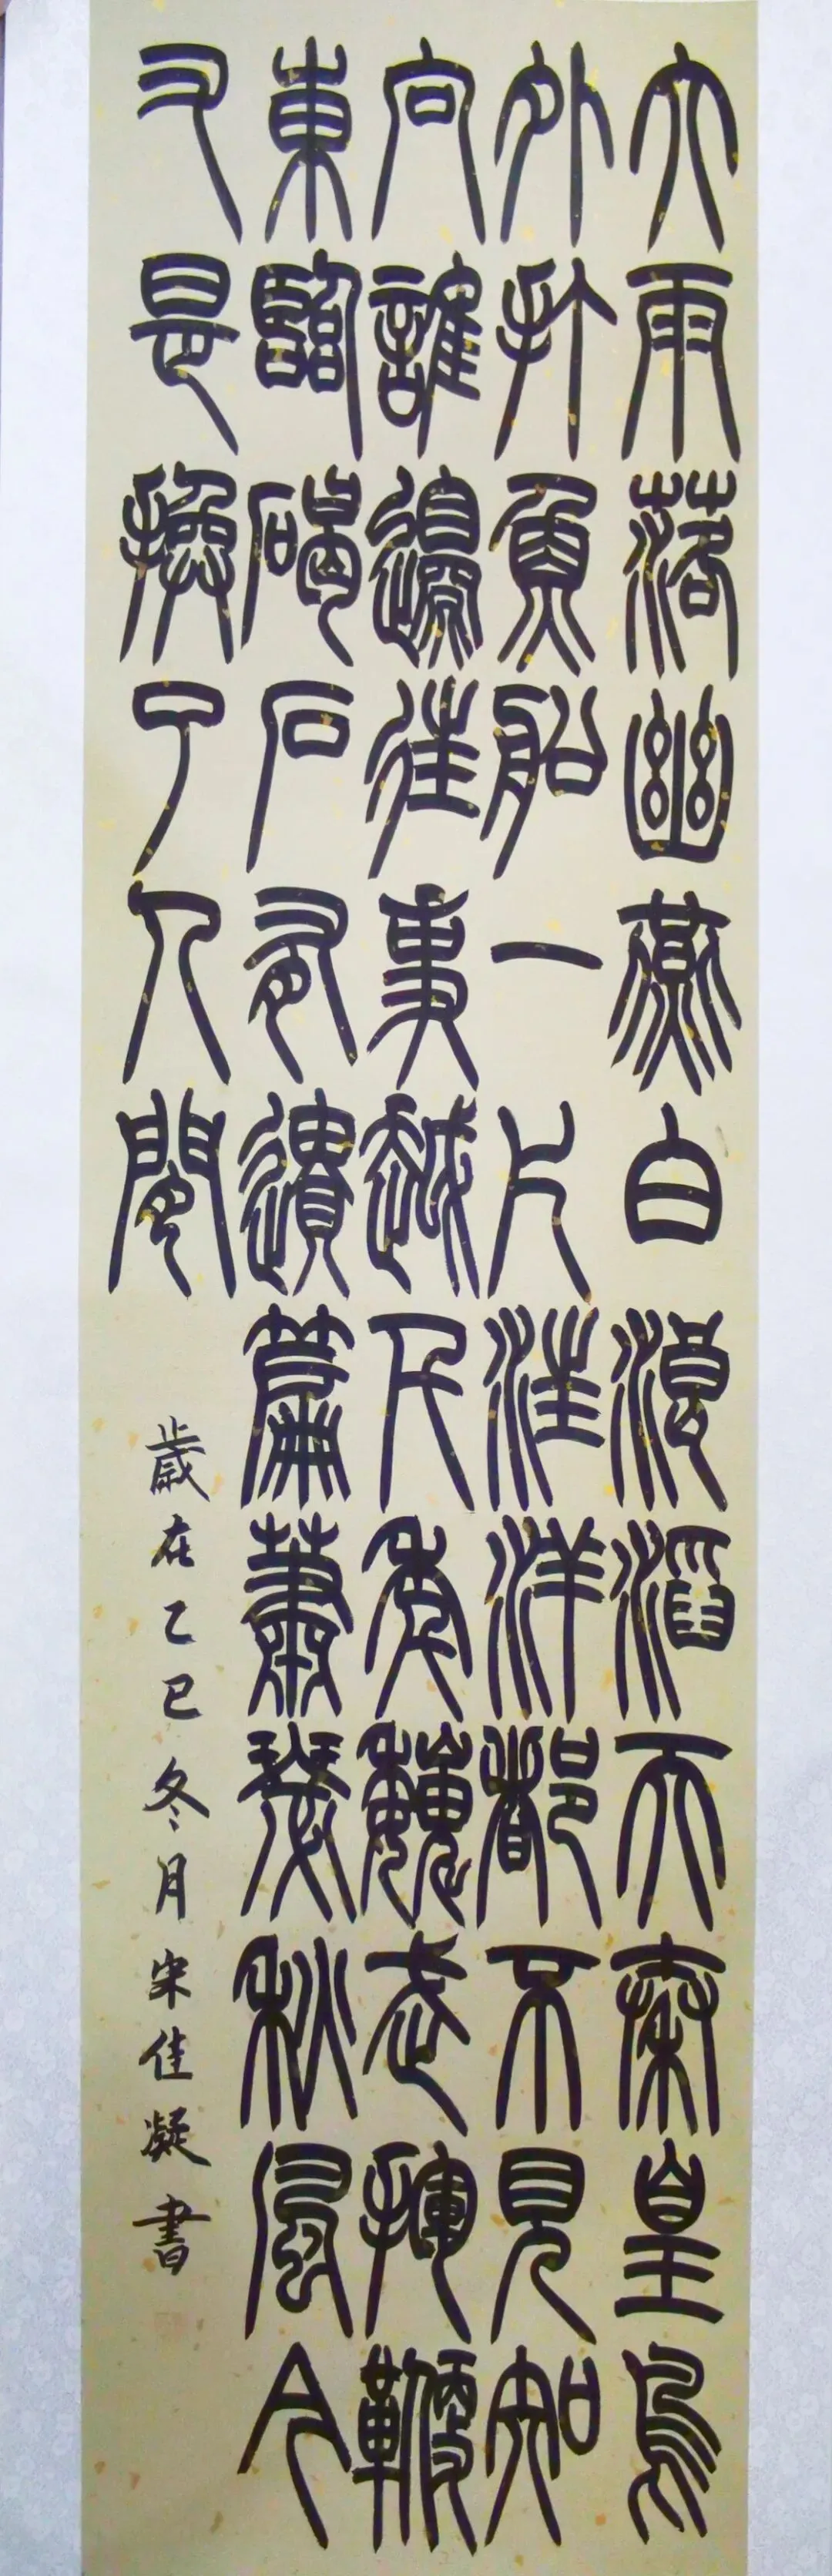 大雨落幽燕白浪滔天秦皇島
外打魚船一片汪洋都不見知
向誰邊往事越千年魏武揮鞭
東臨碣石有遺篇蕭瑟秋風今
又是換了人間
歲在乙巳冬月宋佳凝書